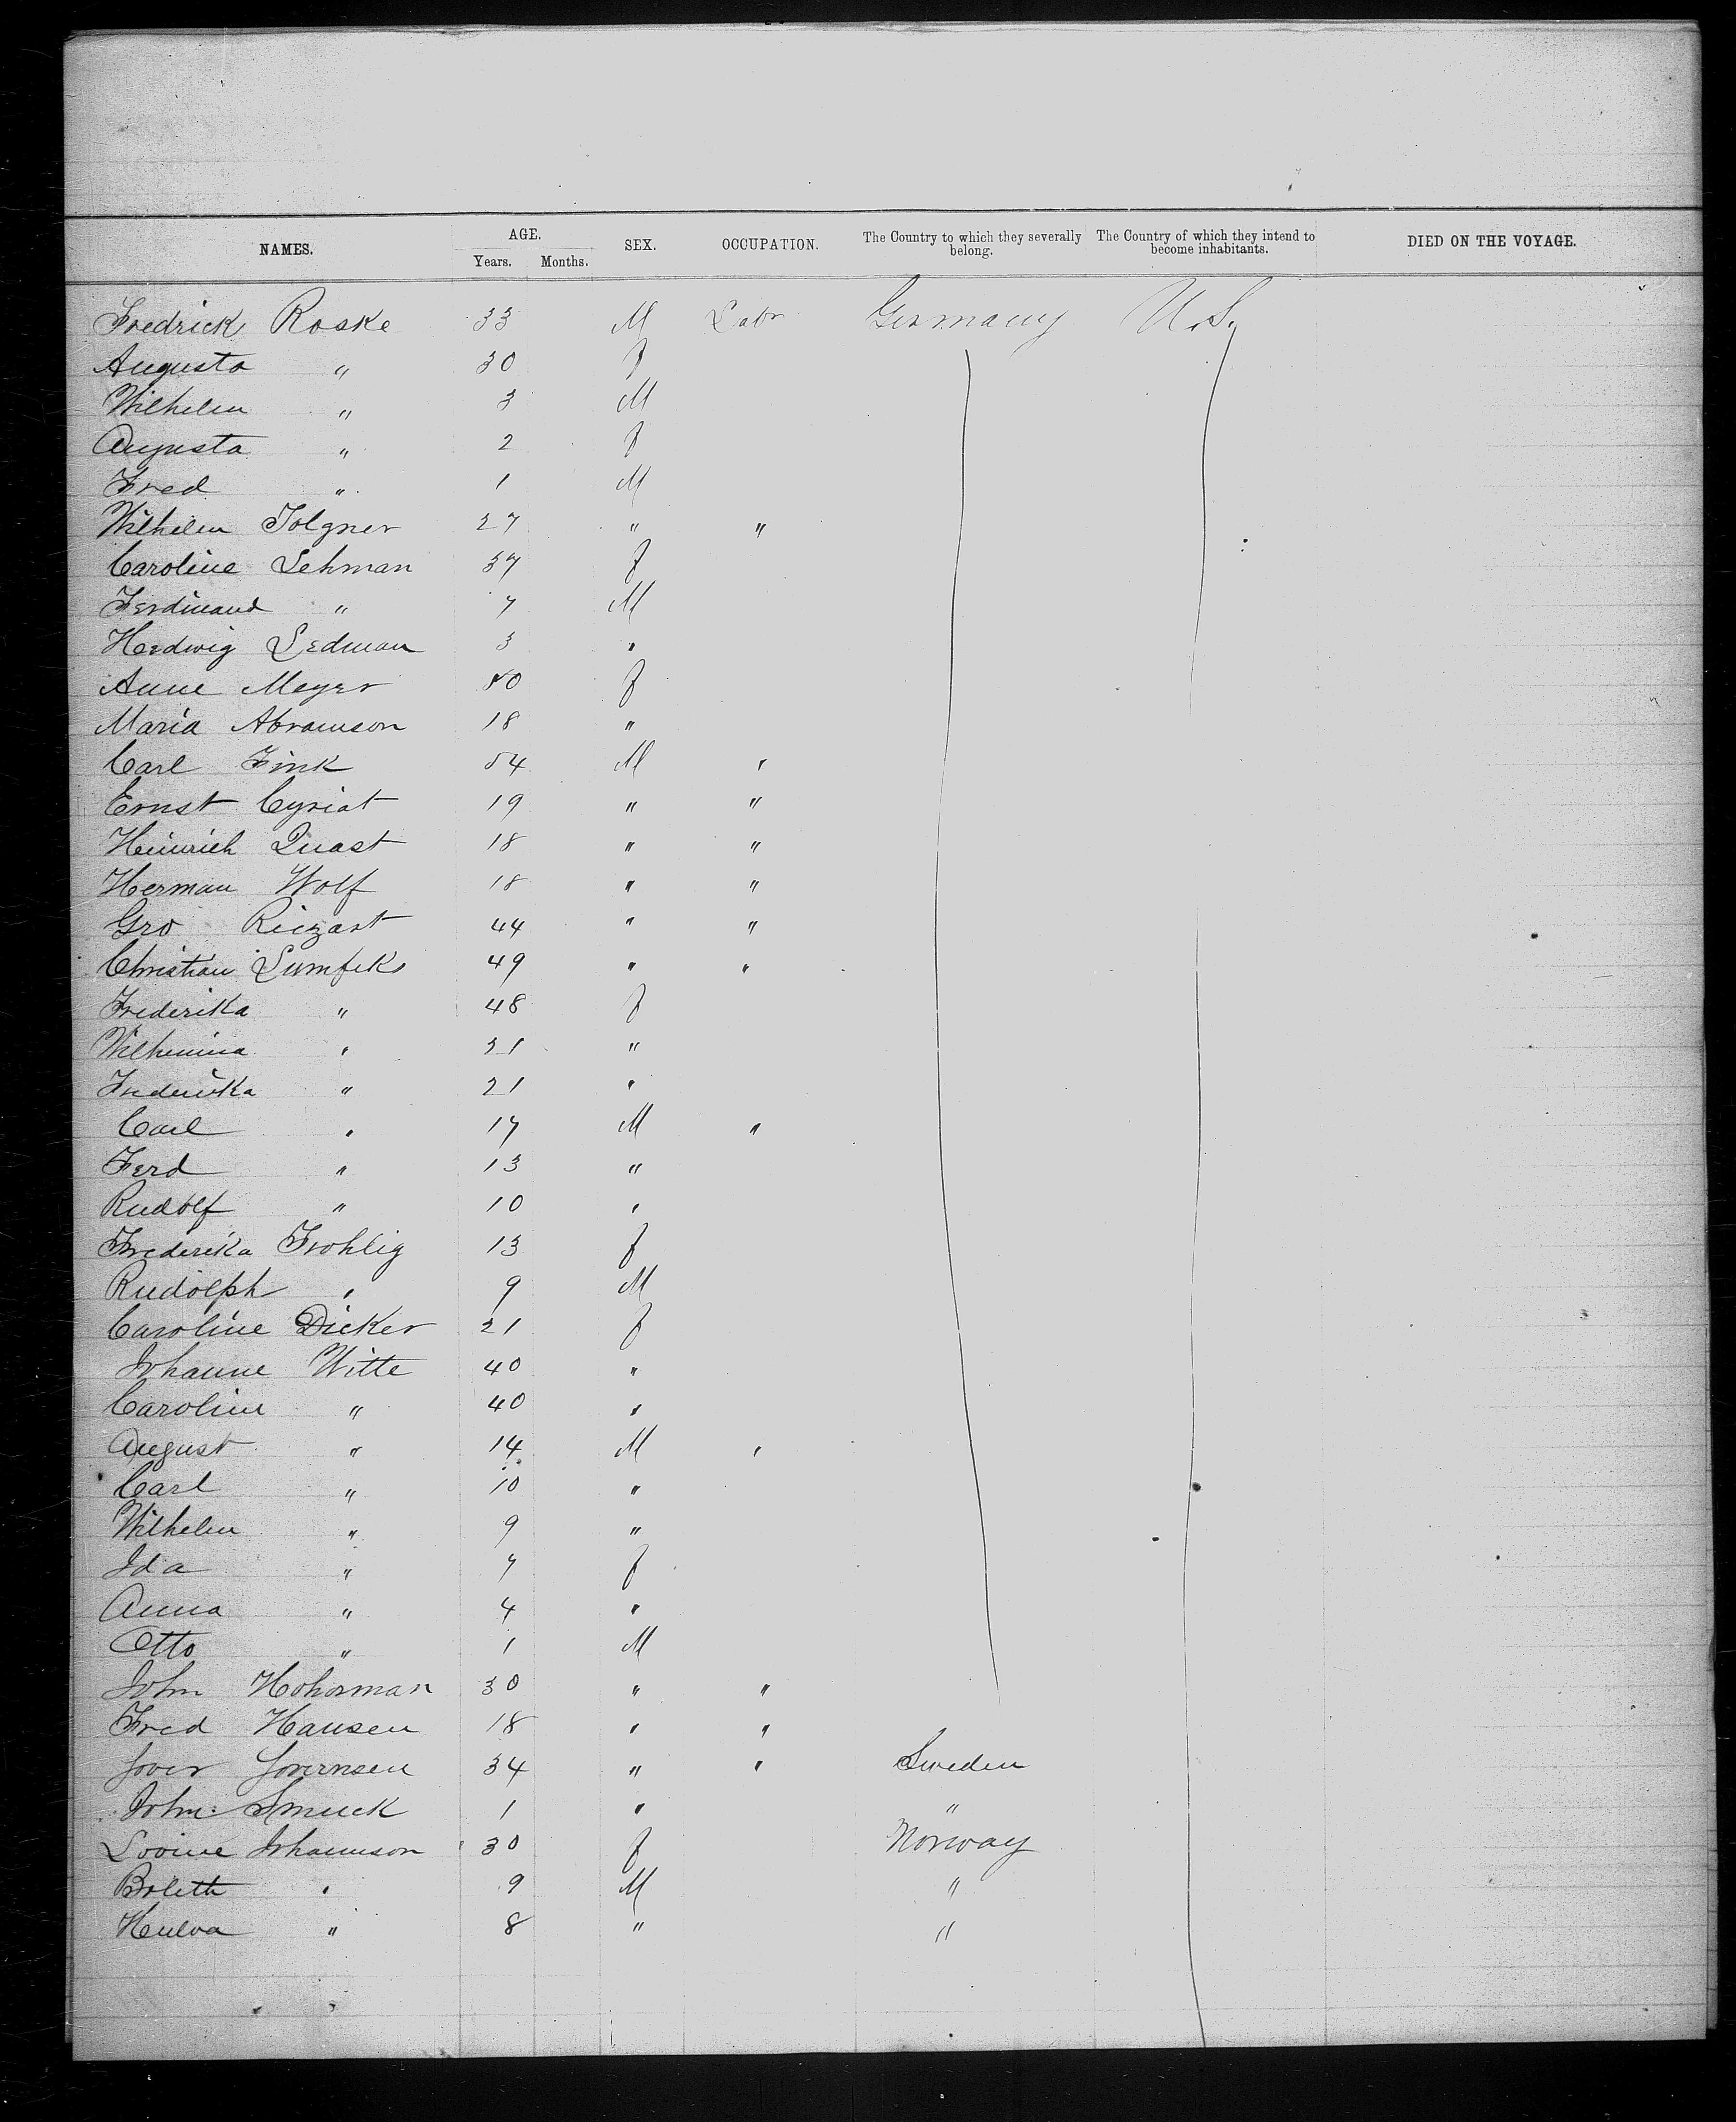 NAMES. AGE. Years. Months. SEX. OCCUPATION. The Country to which they severally belong. The Country of which they intend to become inhabitants. DIED ON THE VOYAGE.
Fredrick Roske 33 M Labr Germany U.S.
Augusta " 30 f
Wilhelm " 3 M
Augusta " 2 f
Fred " 1 M
Wilhelm Tolgner 27 " "
Caroline Lehman 37 f
Ferdinand " 7 M
Hedwig Ledman 3 "
Anne Meyer f
Maria Abramson 18 "
Carl Fink 54 M "
Ernst Cyriat 19 " "
Heinrich Quast 18 " "
Herman Wolf 18 " "
Gro 44 " "
Christian 49 " "
Frederika " 48 f
Wilhemina " "
Frederika " 21 "
Carl " 17 M "
Ferd " 13 "
Rudolf " 10 "
Frederika Frohlig 13 f
Rudolph " 9 M
Caroline Dicker 21 f
Johanne Witte 40 "
Caroline " 40 "
August " 14 M "
Carl " 10 "
Wilhelm " 9 "
Ida " 7 f
Anna " 4 "
Otto " 1 M
John Hohorman 30 " "
Fred Hansen 18 " "
Jover Jovernsen 34 " " Sweden
John Smuck 1 " "
Lovine Johannson 30 f Norway
Boleth " 9 M "
Hulva " 8 " "